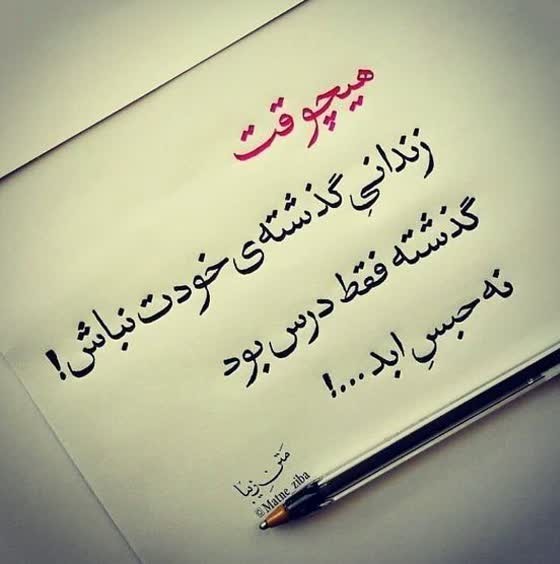 هیچوقت
زندانیِ گذشته‌ی خودت نباش!
گذشته فقط درس بود
نه حبسِ ابد...!
متنِ زیبا
© Matne_ziba